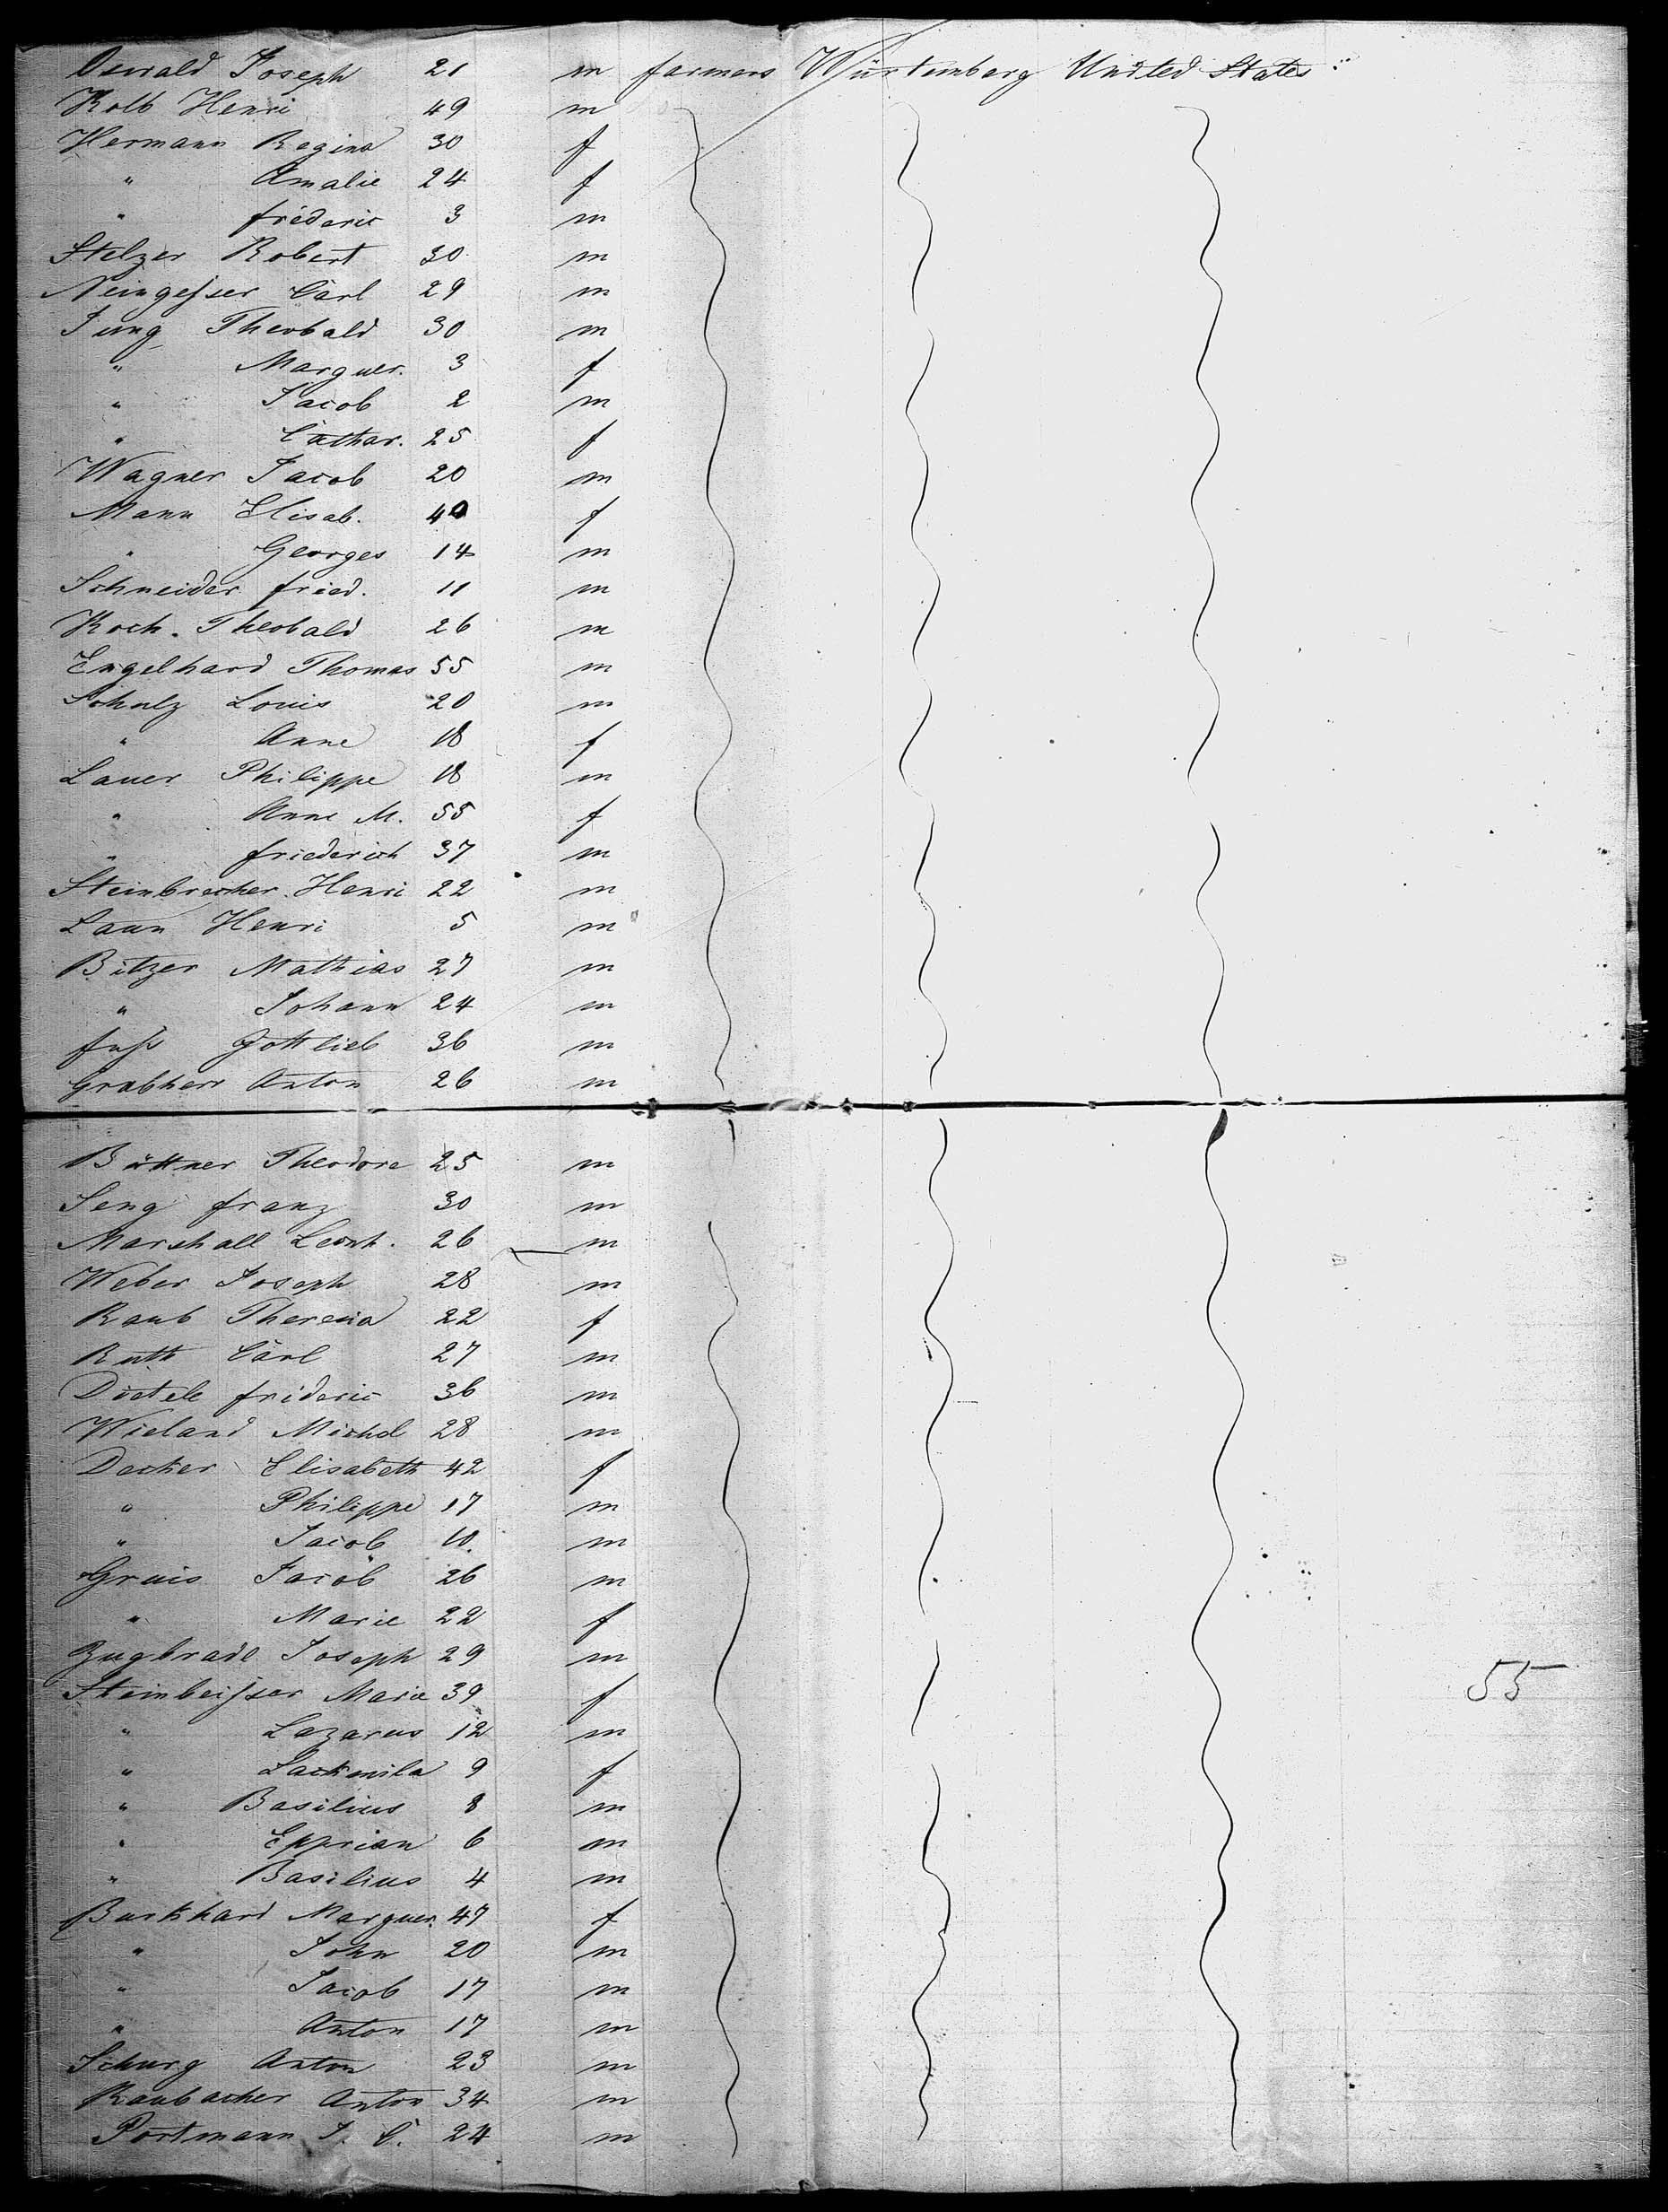 Oswald Joseph 21 m farmers Würtemberg United States
Kolb Henri 49 m
Hermann Regina 30 f
" Amalie 24 f
" fréderic 3 m
Stelzer Robert 30 m
Neingesser Carl 29 m
Jung Theobald 30 m
" Marguer. 3 f
" Jacob 2 m
" Cathar. 25 f
Wagner Jacob 20 m
Mann Elisab. 40 f
" Georges 14 m
Schneider fried. 11 m
Koch. Theobald 26 m
Engelhard Thomas 55 m
Schulz Louis 20 m
" Anne 18 f
Lauer Philippe 18 m
" Anne M. 55 f
" friederich 37 m
Steinbrecher Henri 22 m
Laun Henri 5 m
Bitzer Mathias 27 m
" Johann 24 m
fuss Gottlieb 36 m
Grabherr Anton 26 m
Büttner Theodore 25 m
Seng franz 30 m
Marshall Leonh. 26 m
Weber Joseph 28 m
Raub Theresia 22 f
Ruth Carl 27 m
frideric 36 m
Wieland Michel 28 m
Decker Elisabeth 42 f
" Philippe 17 m
" Jacob 10. m
Gruis Jacob 26 m
" Marie 22 f
Zugbrade Joseph 29 m
Steinbeisser Marie 39 f
" Lazarus 12 m
" 9 f
" Basilius 8 m
" Epprian 6 m
" Basilius 4 m
Burkhard Marguer. 47 f
" John 20 m
" Jacob 17 m
" Anton 17 m
Schurg Anton 23 m
Raubacher Anton 34 m
Portmann J. C. 24 m
55